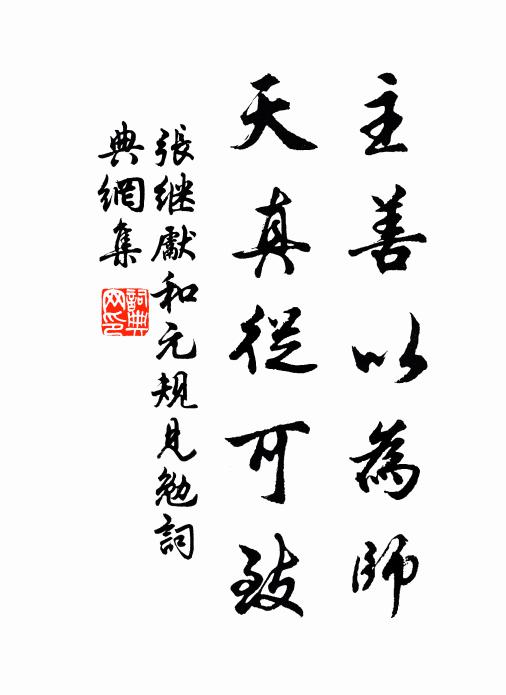 主善以為師
天真從可致
張继獻和元規見勉詞
典網集
詞典網印